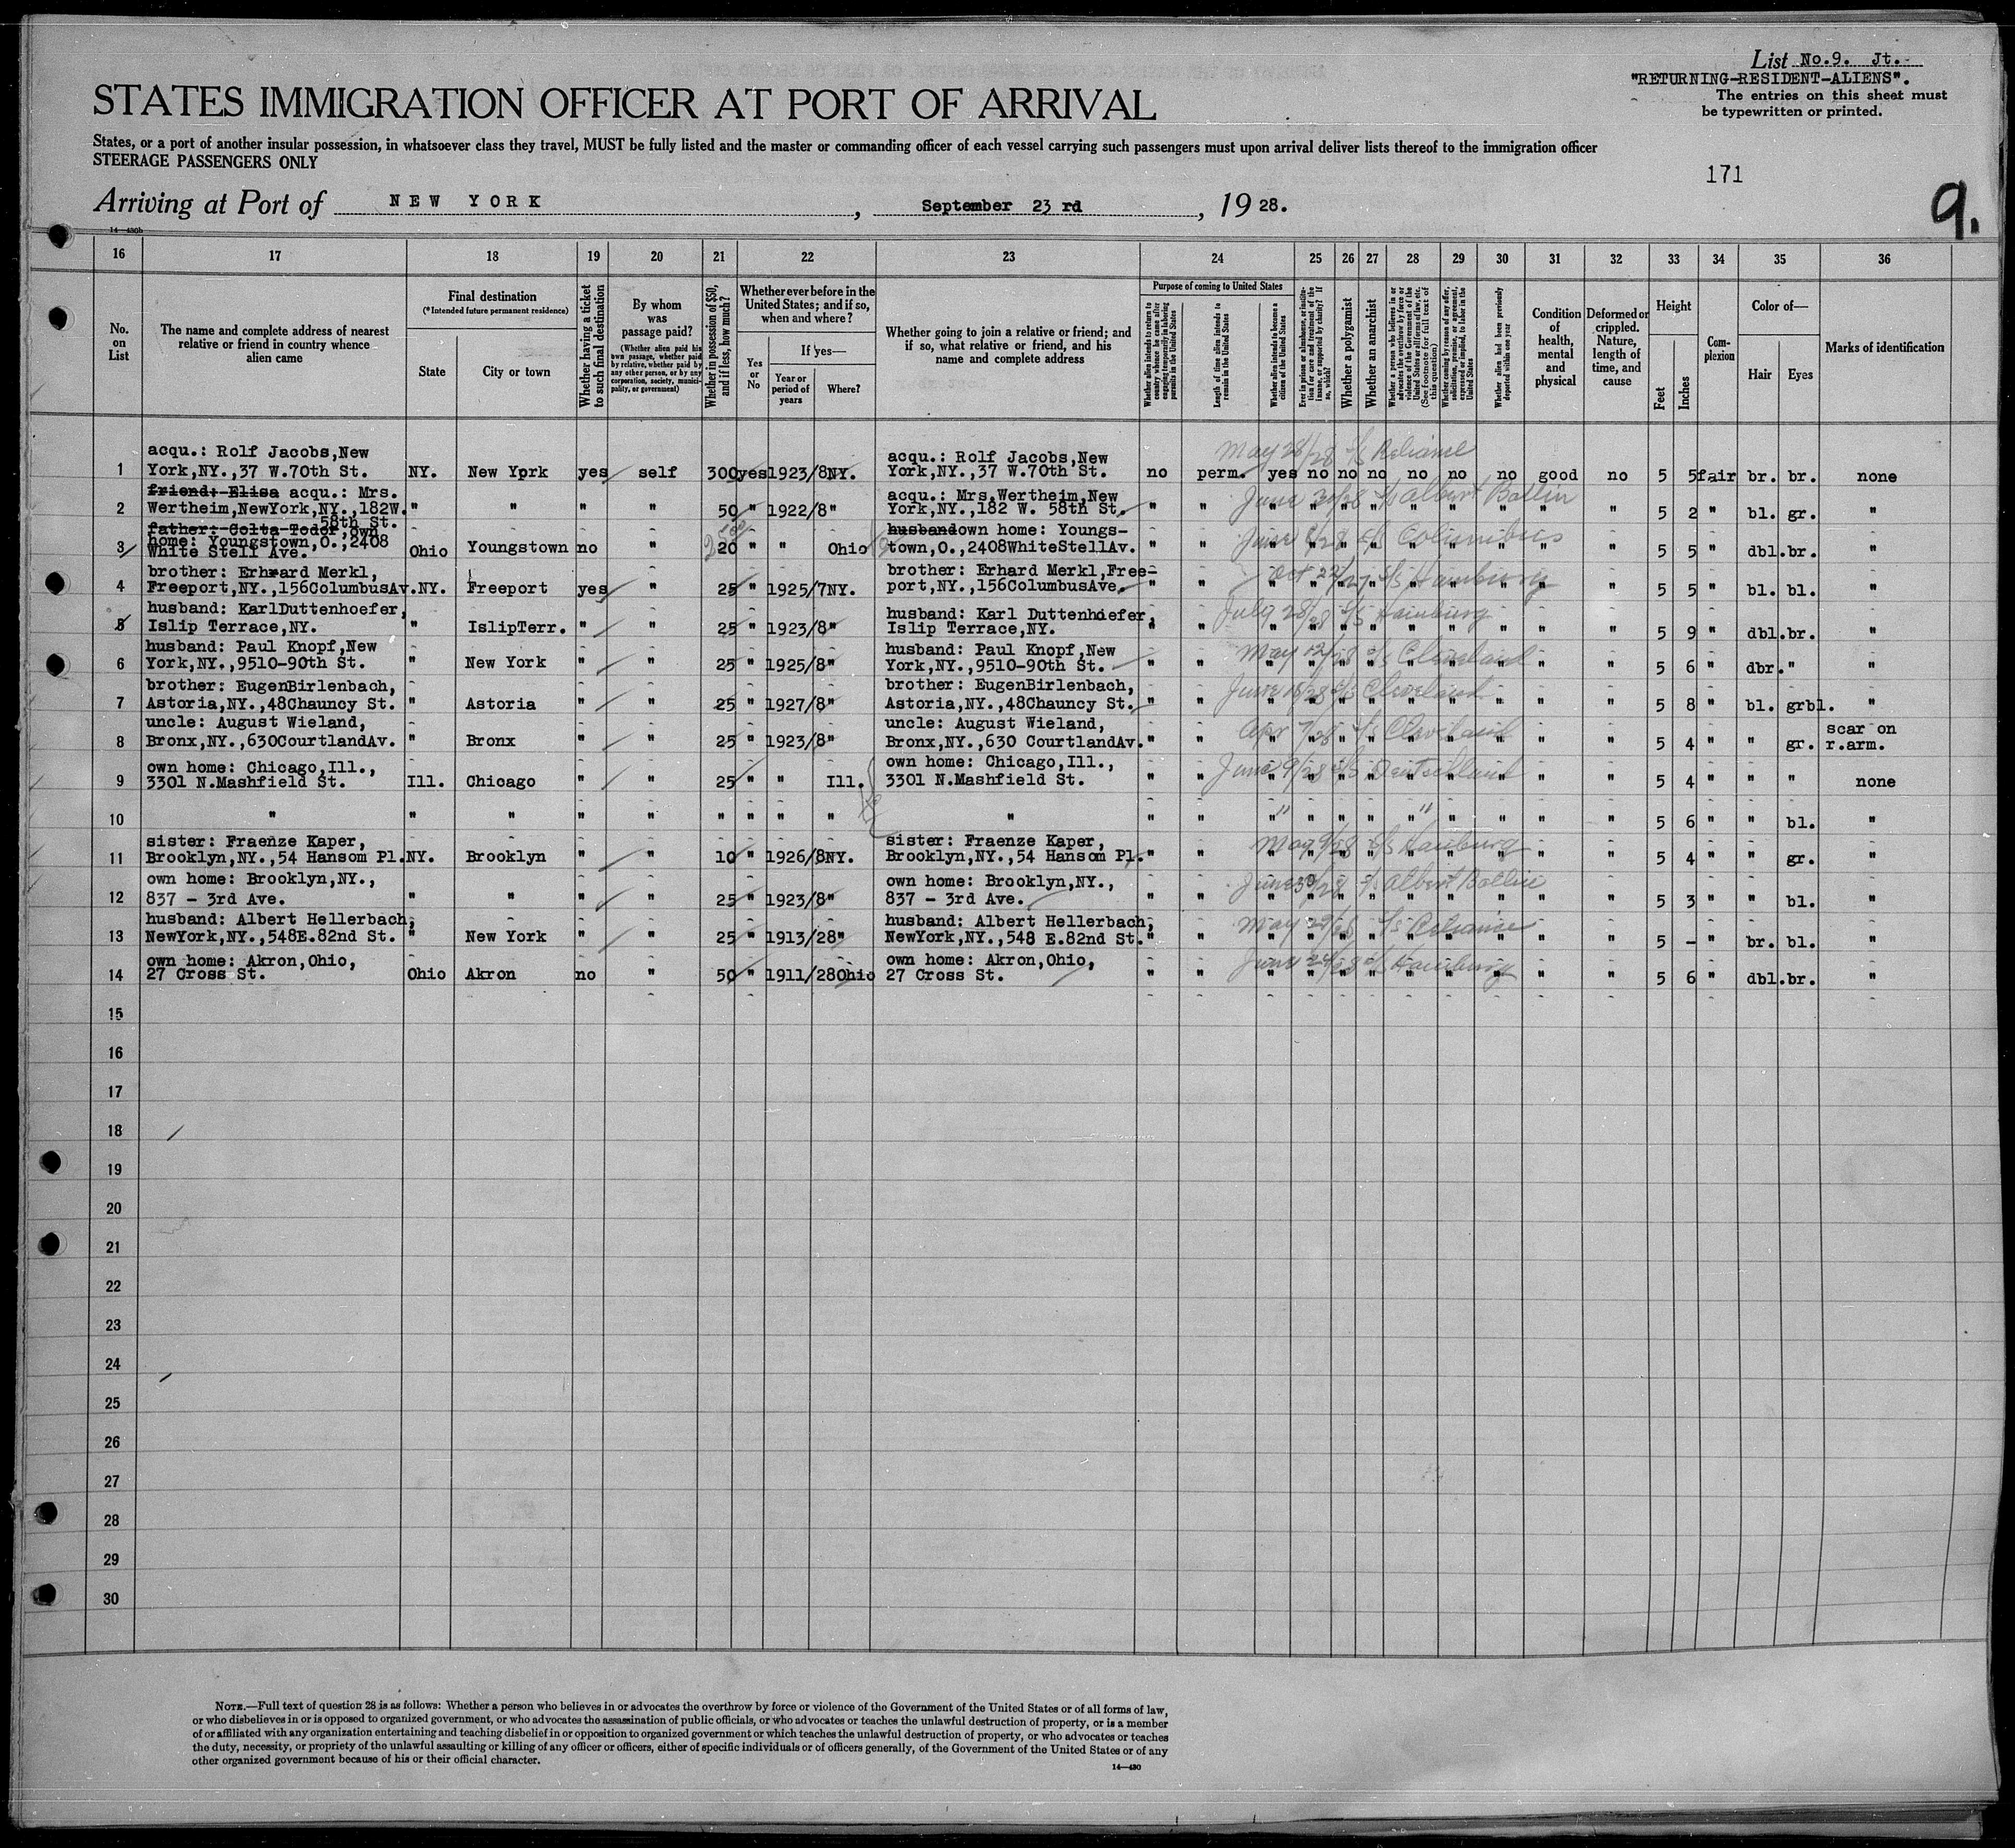 List No.9. Jt.-
"RETURNING-RESIDENT-ALIENS".
The entries on this sheet must
be typewritten or printed.
STATES IMMIGRATION OFFICER AT PORT OF ARRIVAL
States, or a port of another insular possession, in whatsoever class they travel, MUST be fully listed and the master or commanding officer of each vessel carrying such passengers must upon arrival deliver lists thereof to the immigration officer
STEERAGE PASSENGERS ONLY
171
9.
Arriving at Port of NEW YORK, September 23 rd, 1928.
14—430b
16 17 18 19 20 21 22 23 24 25 26 27 28 29 30 31 32 33 34 35 36
No. on List
The name and complete address of nearest relative or friend in country whence alien came
Final destination
(*Intended future permanent residence)
State
City or town
Whether having a ticket to such final destination
By whom was passage paid?
(Whether alien paid his own passage, whether paid by relative, whether paid by any other person, or by any corporation, society, municipality, or government)
Whether in possession of $50, and if less, how much?
Whether ever before in the United States; and if so, when and where?
Yes or No
If yes—
Year or period of years
Where?
Whether going to join a relative or friend; and if so, what relative or friend, and his name and complete address
Purpose of coming to United States
Whether alien intends to return to country whence he came after engaging temporarily in laboring pursuits in the United States
Length of time alien intends to remain in the United States
Whether alien intends to become a citizen of the United States
Ever in prison or almshouse, or institution for care and treatment of the insane, or supported by charity? If so, which?
Whether a polygamist
Whether an anarchist
Whether a person who believes in or advocates the overthrow by force or violence of the Government of the United States or all forms of law, etc. (See footnote for full text of this question)
Whether coming by reason of any offer, solicitation, promise, or agreement, expressed or implied, to labor in the United States
Whether alien had been previously deported within one year
Condition of health, mental and physical
Deformed or crippled. Nature, length of time, and cause
Height
Feet
Inches
Complexion
Color of—
Hair
Eyes
Marks of identification
May 28/28 S/S Reliance
acqu.: Rolf Jacobs,New acqu.: Rolf Jacobs,New
1 York,NY.,37 W.70th St. NY. New York yes self 300 yes 1923/8 NY. York,NY.,37 W.70th St. no perm. yes no no no no no no good no 5 5 fair br. br. none
friend: Elisa acqu.: Mrs. acqu.: Mrs.Wertheim,New June 30/28 S/S Albert Ballin
2 Wertheim,NewYork,NY.,182W. " " " " 50 " 1922/8 " York,NY.,182 W. 58th St. " " " " " " " " " " " 5 2 " bl. gr. "
58th St.
father: Colta Todor,own husband own home: Youngs- June 8/28 S/S Columbus
home: Youngstown,O.,2408
3 White Stell Ave. Ohio Youngstown no " 20 " " Ohio town,O.,2408WhiteStellAv. " " " " " " " " " " " 5 5 " dbl. br. "
brother: Erhard Merkl, brother: Erhard Merkl,Free- Oct 22/27 S/S Hamburg
4 Freeport,NY.,156ColumbusAv. NY. Freeport yes " 25 " 1925/7 NY. port,NY.,156ColumbusAve. " " " " " " " " " " " 5 5 " bl. bl. "
husband: KarlDuttenhoefer, husband: Karl Duttenhoefer, July 28/28 S/S Hamburg
5 Islip Terrace,NY. " IslipTerr. " " 25 " 1923/8 " Islip Terrace,NY. " " " " " " " " " " " 5 9 " dbl. br. "
husband: Paul Knopf,New husband: Paul Knopf,New May 12/28 S/S Cleveland
6 York,NY.,9510-90th St. " New York " " 25 " 1925/8 " York,NY.,9510-90th St. " " " " " " " " " " " 5 6 " dbr. " "
brother: EugenBirlenbach, brother: EugenBirlenbach, June 15/28 S/S Cleveland
7 Astoria,NY.,48Chauncy St. " Astoria " " 25 " 1927/8 " Astoria,NY.,48Chauncy St. " " " " " " " " " " " 5 8 " bl. grbl. "
uncle: August Wieland, uncle: August Wieland, Apr 7/28 S/S Cleveland scar on
8 Bronx,NY.,630CourtlandAv. " Bronx " " 25 " 1923/8 " Bronx,NY.,630 CourtlandAv. " " " " " " " " " " " 5 4 " " gr. r.arm.
own home: Chicago,Ill., own home: Chicago,Ill., June 9/28 S/S Deutschland
9 3301 N.Mashfield St. Ill. Chicago " " 25 " " Ill. 3301 N.Mashfield St. " " " " " " " " " " " 5 4 " " " none
10 " " " " " " " " " " " " " " " " " " " " " 5 6 " " bl. "
sister: Fraenze Kaper, sister: Fraenze Kaper, May 9/28 S/S Hamburg
11 Brooklyn,NY.,54 Hansom Pl. NY. Brooklyn " " 10 " 1926/8 NY. Brooklyn,NY.,54 Hansom Pl. " " " " " " " " " " " 5 4 " " gr. "
own home: Brooklyn,NY., own home: Brooklyn,NY., June 30/28 S/S Albert Ballin
12 837 - 3rd Ave. " " " " 25 " 1923/8 " 837 - 3rd Ave. " " " " " " " " " " " 5 3 " " bl. "
husband: Albert Hellerbach, husband: Albert Hellerbach, May 29/28 S/S Reliance
13 NewYork,NY.,548E.82nd St. " New York " " 25 " 1913/28 " NewYork,NY.,548 E.82nd St. " " " " " " " " " " " 5 - " br. bl. "
own home: Akron,Ohio, own home: Akron,Ohio, June 24/28 S/S Hamburg
14 27 Cross St. Ohio Akron no " 50 " 1911/28 Ohio 27 Cross St. " " " " " " " " " " " 5 6 " dbl. br. "
15
16
17
18
19
20
21
22
23
24
25
26
27
28
29
30
NOTE.—Full text of question 28 is as follows: Whether a person who believes in or advocates the overthrow by force or violence of the Government of the United States or of all forms of law,
or who disbelieves in or is opposed to organized government, or who advocates the assassination of public officials, or who advocates or teaches the unlawful destruction of property, or is a member
of or affiliated with any organization entertaining and teaching disbelief in or opposition to organized government or which teaches the unlawful destruction of property, or who advocates or teaches
the duty, necessity, or propriety of the unlawful assaulting or killing of any officer or officers, either of specific individuals or of officers generally, of the Government of the United States or of any
other organized government because of his or their official character.
14—430